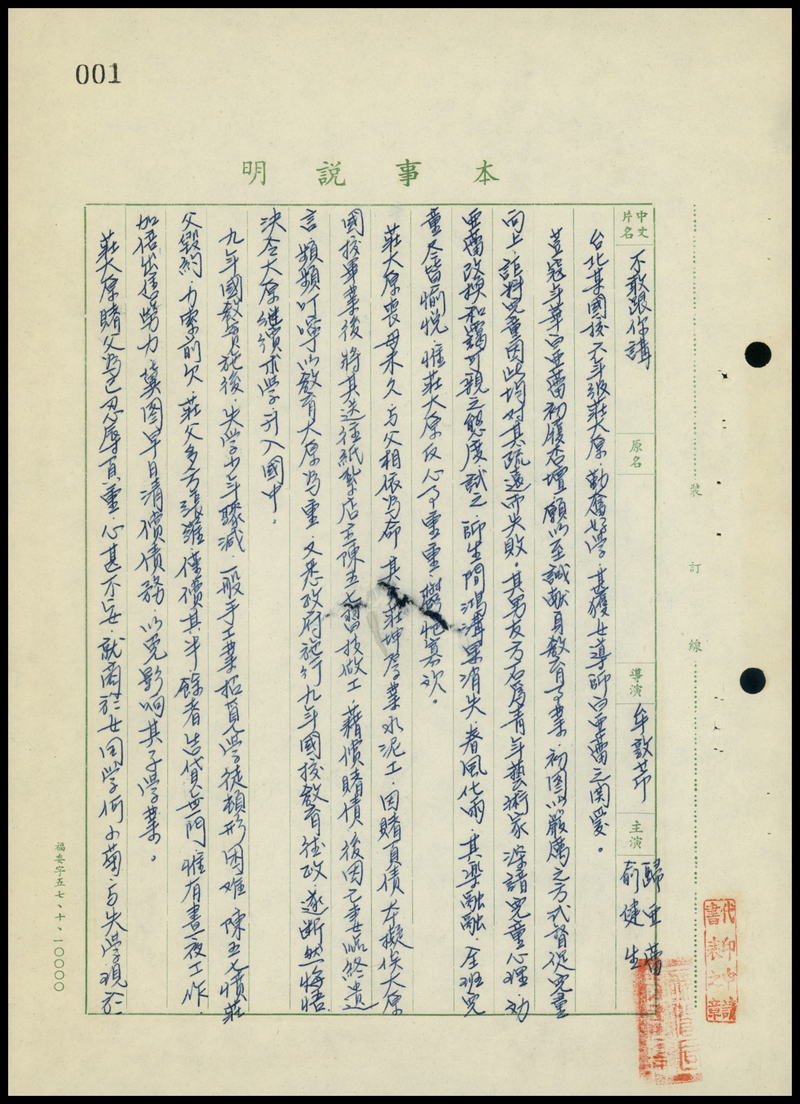 001
本事說明
中文片名 不敢跟你講 原名 導演 牟敦芾 主演 歸亞蕾 俞健生
台北某國校六年級莊大原勤奮好學，甚獲女導師白亞蕾之関愛。
荳寇年華白亞蕾初履杏壇，願以至誠献身教育事業，初図以嚴厲之方式督促児童
向上，詎料児童因此均对其疏遠而失敗。其男友方石為青年藝術家，深諳児童心理，劝
亞蕾改換和靄可親之態度試之，師生間鴻溝果消失，春風化雨，其楽融融，全班児
童尽皆愉悅，惟莊大原仮心事重重，
莊大原喪母未久，与父相依為命，其父莊坤為業水泥工，因賭負債，本擬俟大原
國校畢業後將其送往紙紮店王陳五七習技做工，藉償賭債，後因亡妻臨終遺
言，頻頻叮嚀以教育大原為重，又悉政府施行九年國校教育德政，遂断然悔悟，
決令大原継續求學，升入國中。
九年國教實施後，失學少年驟減，一般手工業招覓學徒頓形困难，陳五七憤莊
父毀約，力索前欠，莊父多方張羅，僅償其半，餘者告貸無門，惟有晝夜工作，
加倍出售勞力，冀図早日清償債務，以免影响其子學業。
莊大原睹父為己忍辱負重，心甚不安，就商於女同學何小菊，与失學現於
裝訂線
福委字五七、十、一〇〇〇〇